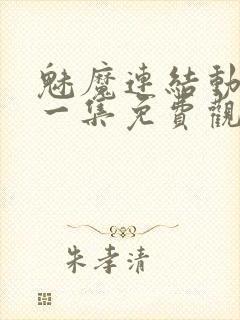 魅魔連結動
一集免費觀
朱孝清